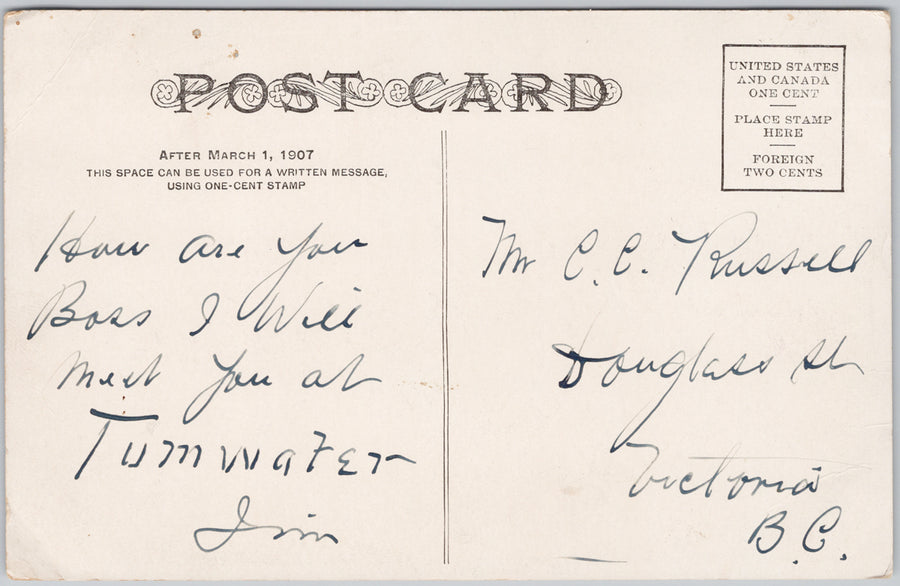 POST CARD
UNITED STATES
AND CANADA
ONE CENT
PLACE STAMP
HERE
FOREIGN
TWO CENTS
AFTER MARCH 1, 1907
THIS SPACE CAN BE USED FOR A WRITTEN MESSAGE,
USING ONE-CENT STAMP
How are you
Boss I Will
meet you at
Tumwater
Jim
Mr C. C. Russell
Douglass St
Victoria
B.C.